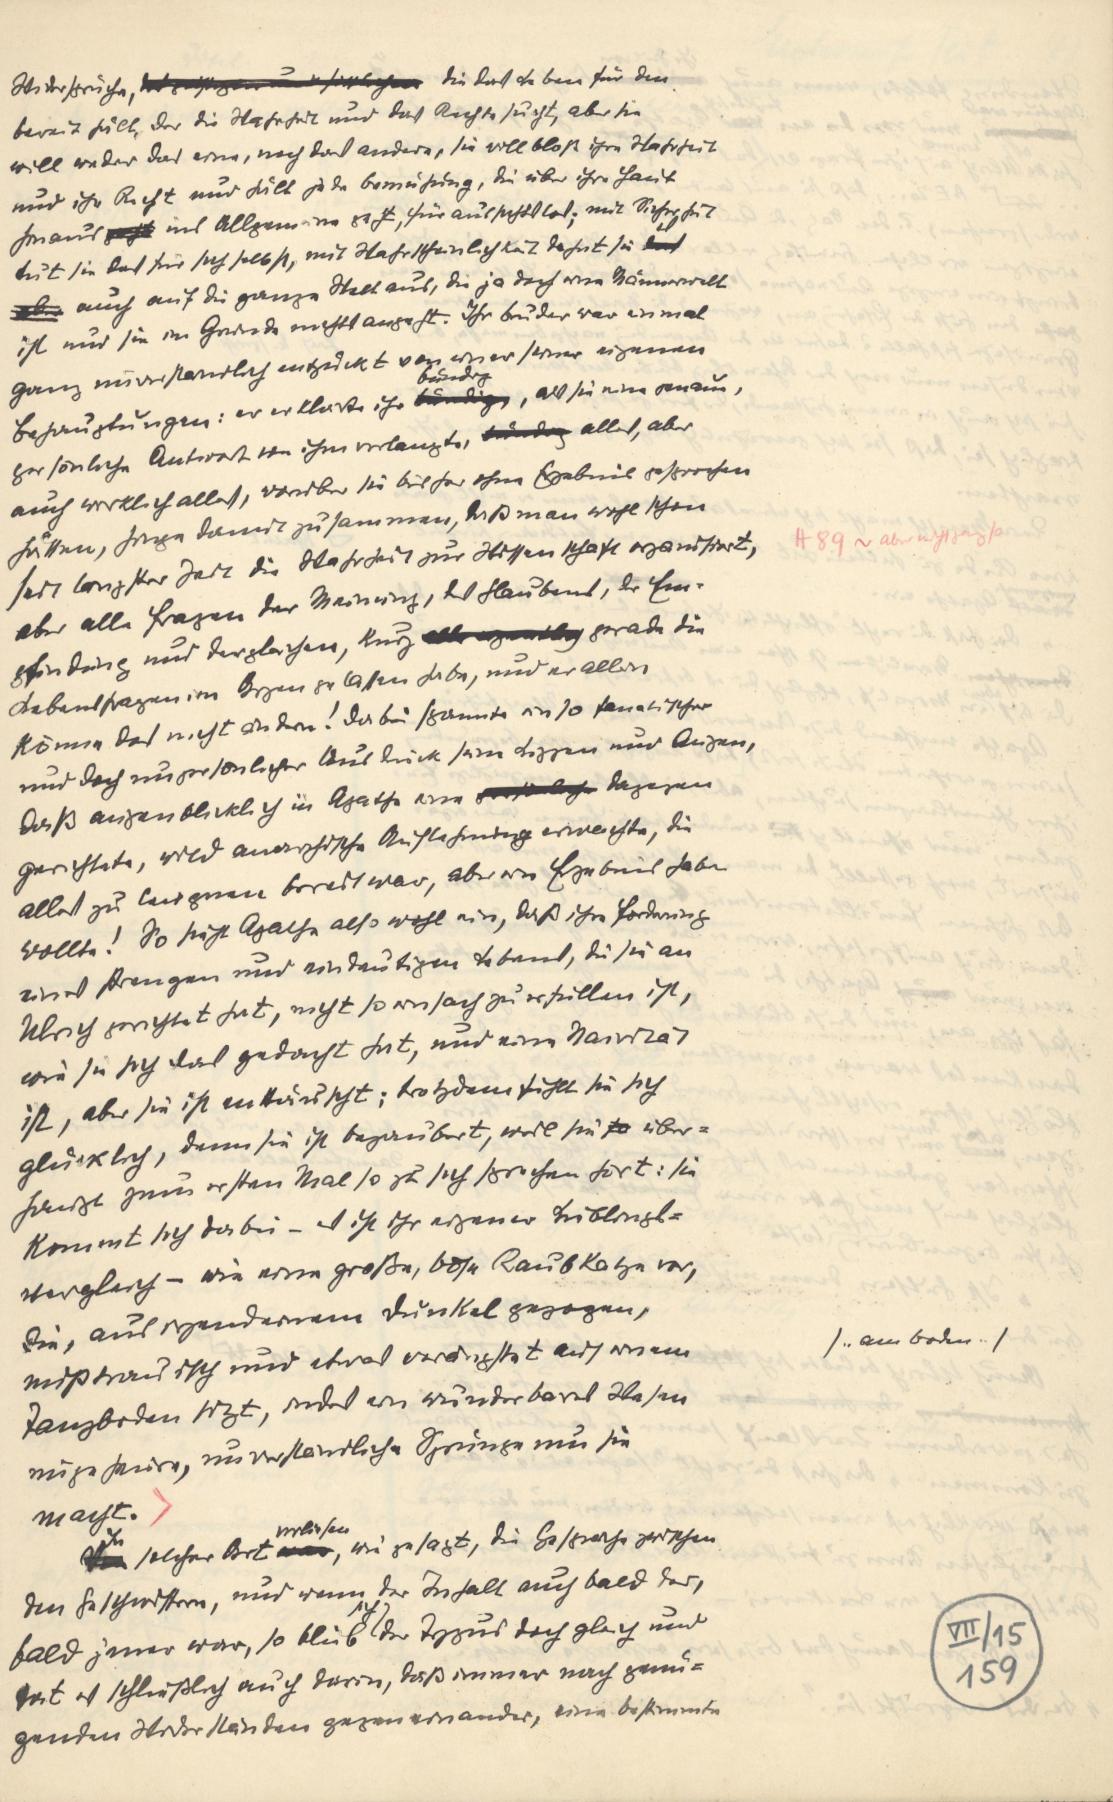 Widersprüche, die das Leben für den
bereit hält, der die Wahrheit und das Rechte sucht, aber sie
will weder das eine, noch das andere, sie will bloß ihre Wahrheit
und ihr Recht und hält jede Bemühung, die über ihre Haut
hinaus ins Allgemeine geht, für aussichtslos; mit Sicherheit
tut sie das für sich selbst, mit Wahrscheinlichkeit dehnt sie es
auch auf die ganze Welt aus, die ja doch eine Männerwelt
ist und sie im Grunde nichts angeht. Ihr Bruder war einmal
ganz unverständlich entzückt von einer seiner eigenen
Behauptungen: er erklärte ihr bündig, als sie eine genaue,
persönliche Antwort von ihm verlangte, alles, aber
auch wirklich alles, worüber sie bisher ohne Ergebnis gesprochen
hätten, hänge damit zusammen, daß man wohl schon
seit langster Zeit die Wahrheit zur Wissenschaft organisiert,
A 89 ~ aber nicht ganz so
aber alle Fragen der Meinung, des Glaubens, der Em-
pfindung und dergleichen, kurz gerade die
Lebensfragen im Argen gelassen habe, und er allein
könne das nicht ändern! Dabei spannte ein so fanatischer
und doch unpersönlicher Ausdruck seine Lippen und Augen,
daß augenblicklich in Agathe eine dagegen
gerichtete, wild anarchische Auflehnung erwachte, die
alles zu leugnen bereit war, aber ein Ergebnis haben
wollte! So sieht Agathe also wohl ein, daß ihre Forderung
eines strengen und eindeutigen Lebens, die sie an
Ulrich gerichtet hat, nicht so einfach zu erfüllen ist,
wie sie sich das gedacht hat, und eine Naivität
ist, aber sie ist enttäuscht; trotzdem fühlt sie sich
glücklich, denn sie ist bezaubert, weil sie über-
haupt zum ersten Mal so zu sich sprechen hört: sie
kommt sich dabei – es ist ihr eigener Lieblings-
vergleich – wie eine große, böse Raubkatze vor,
die, aus irgendeinem Dunkel gezogen,
mißtrauisch und etwas verängstet auf einem
/.. am boden.. /
Tanzboden sitzt, indes ein wunderbares Wesen
ungeheure, unverständliche Sprünge um sie
macht.
In solcher Art verliefen, wie gesagt, die Gespräche zwischen
den Geschwistern, und wenn der Inhalt auch bald der,
bald jener war, so blieb sich der Typus doch gleich und
tat es schließlich auch darin, daß immer nach genü-
genden Widerständen gegeneinander, eine bestimmte
VII/15
159